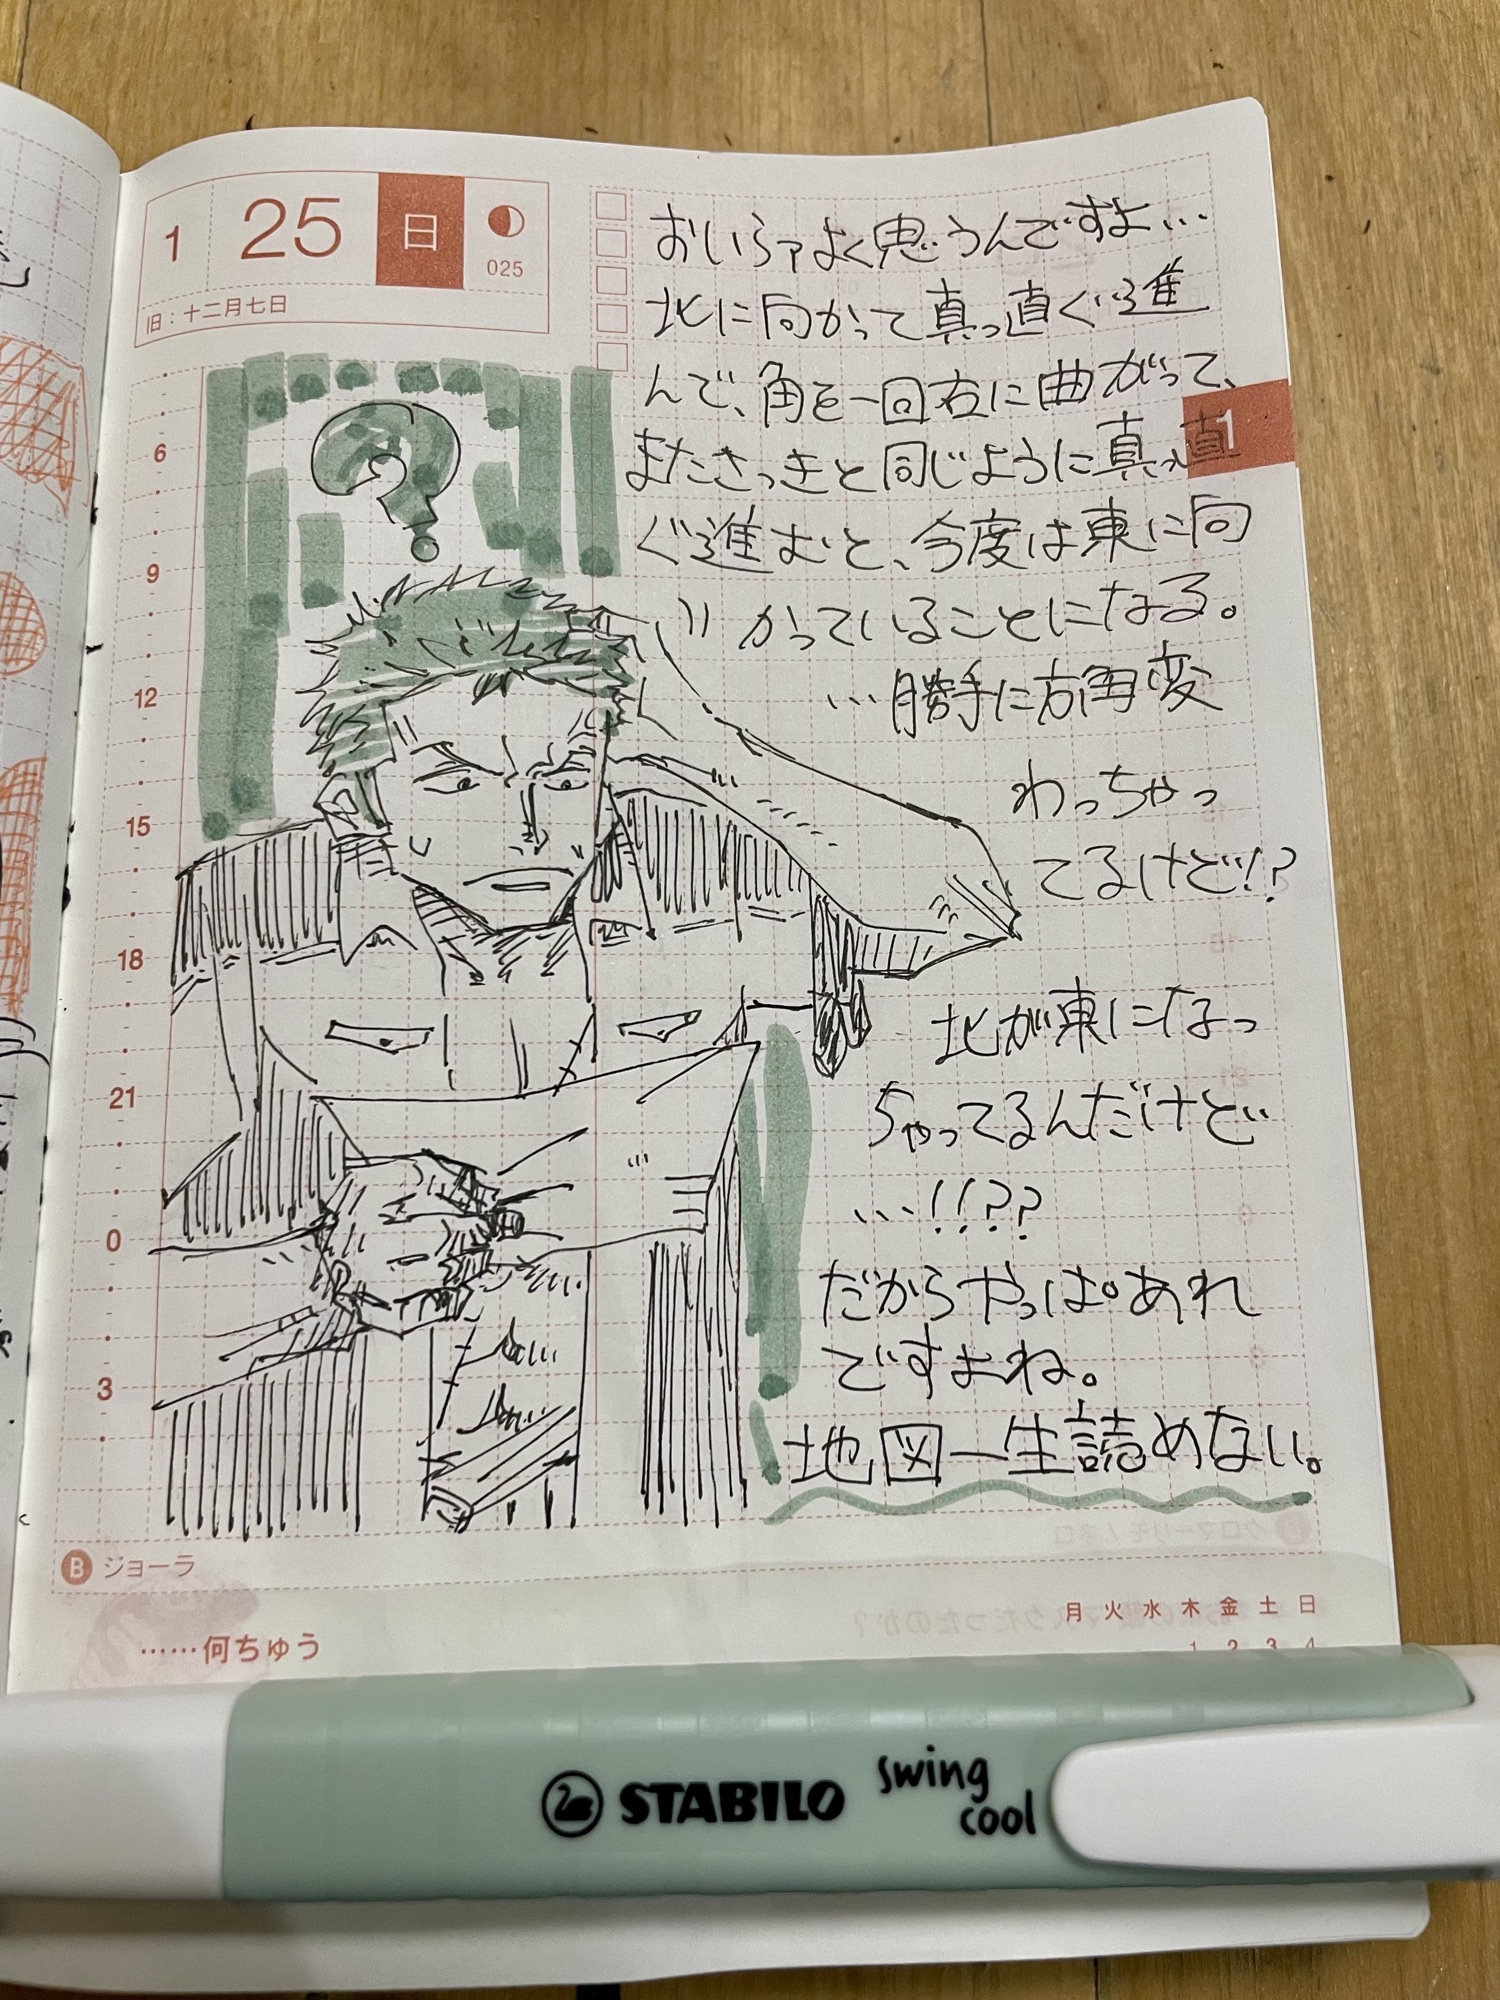 1 25 日
025
旧：十二月七日
おいらァよく思うんですよ…
北に向かって真っ直ぐ進
んで、角を一回右に曲がって、
1
またさっきと同じように真っ直
ぐ進むと、今度は東に向
かっていることになる。
…勝手に方角変
わっちゃっ
てるけど!?
北が東になっ
ちゃってるんだけど
…!!??
だからやっぱあれ
ですよね。
地図一生読めない。
?
6
9
12
15
18
21
0
3
B ジョーラ
……何ちゅう
月 火 水 木 金 土 日
1 2 3 4
STABILO swing cool